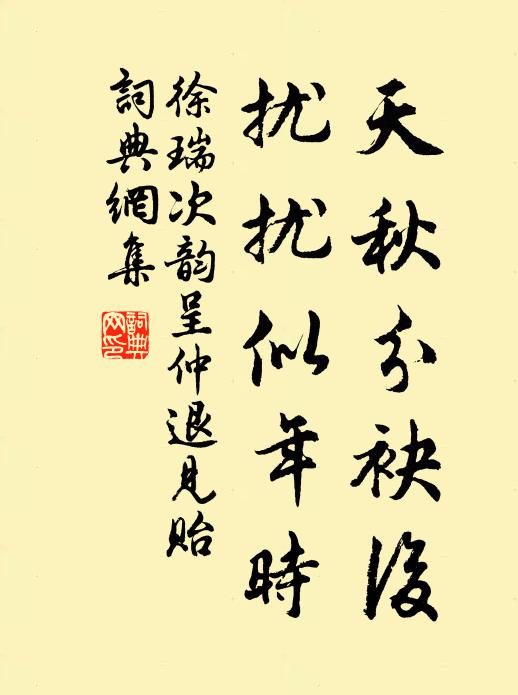 天秋分袂後
扰扰似年時
徐瑞次韵呈仲退見貽
詞典網集
詞典网印